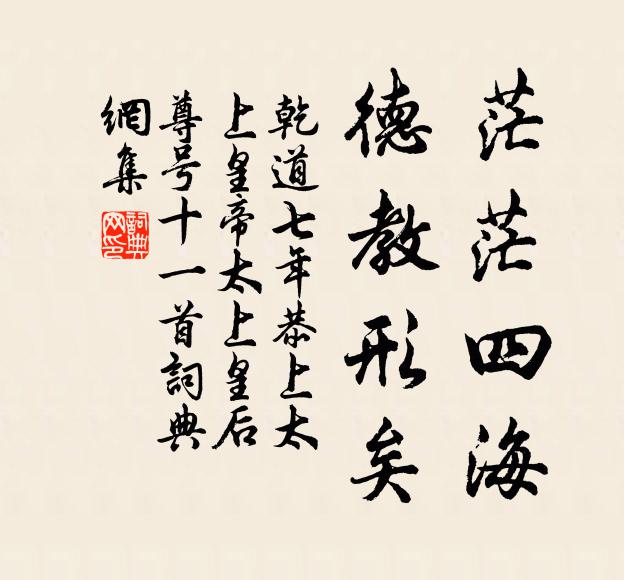 茫茫四海
德教形矣
乾道七年恭上太
上皇帝太上皇后
尊号十一首詞典
網集
詞典网印